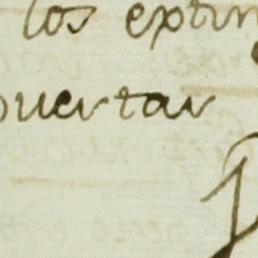 los extin
overtar